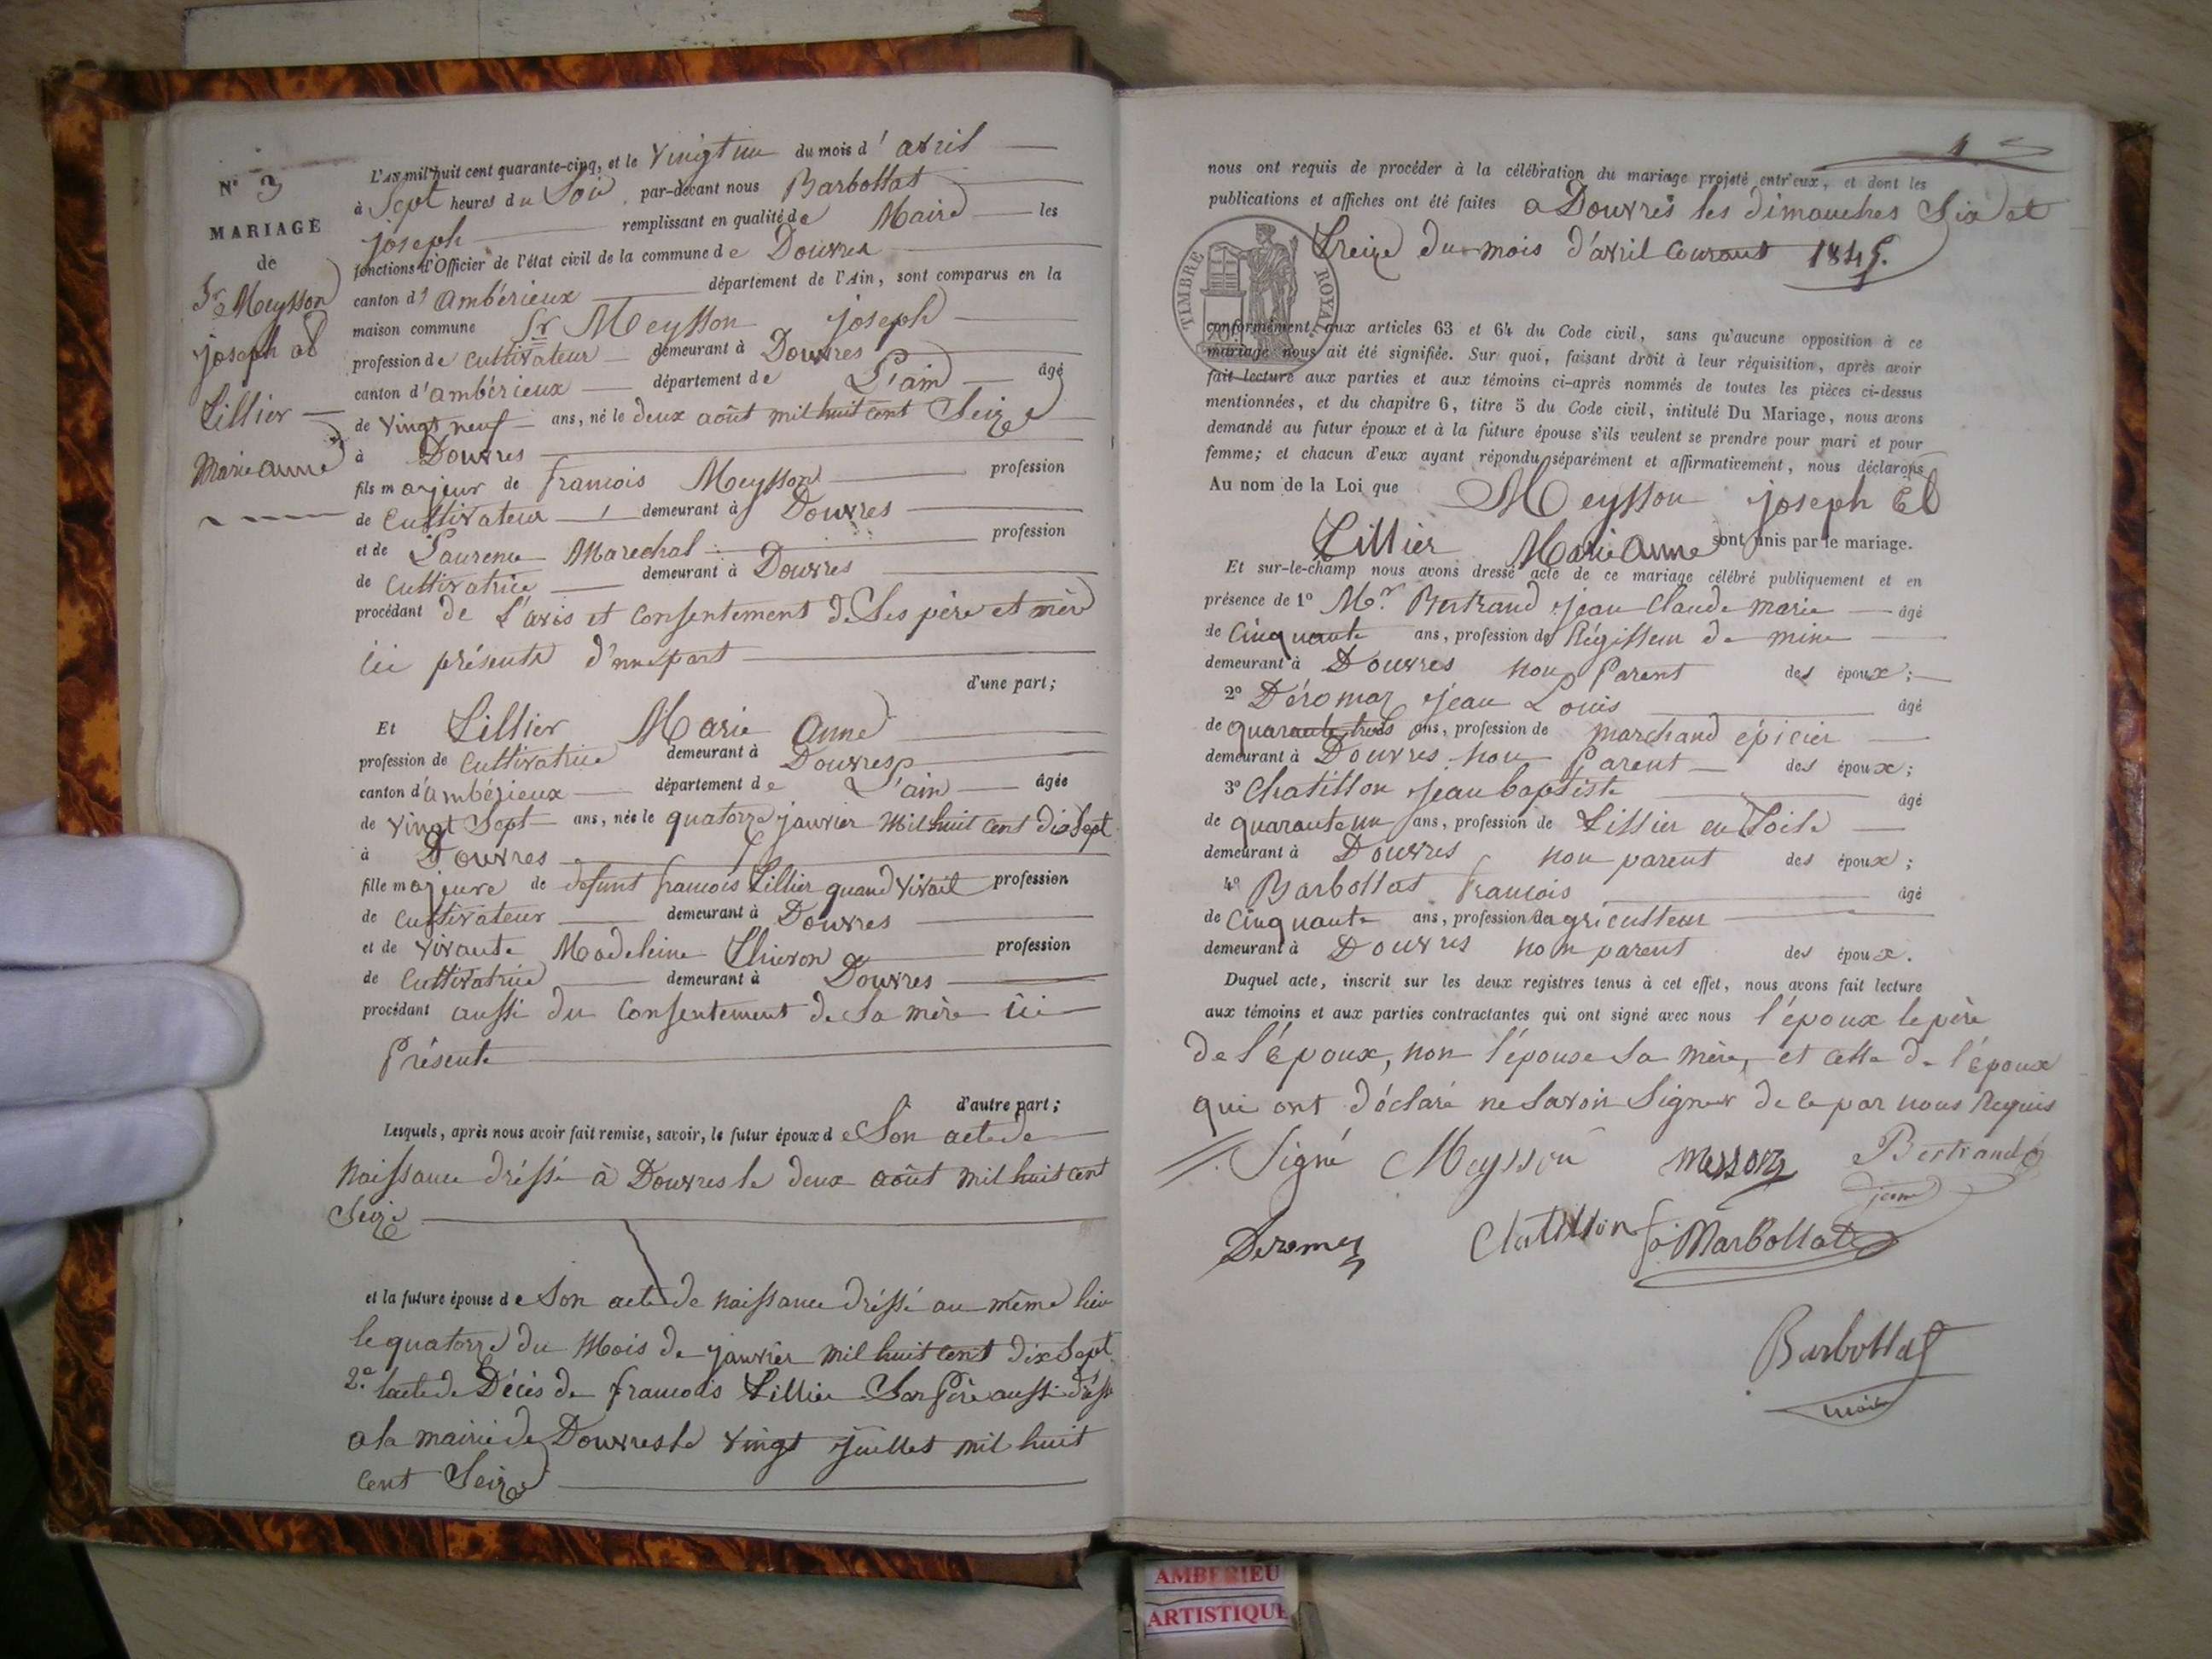 N° 3
MARIAGE
de
Sr Meysson
joseph et
Tillier
Marie anne
L'an mil huit cent quarante-cinq, et le vingt un du mois d'avril
à Sept heures du Soir, par-devant nous Barbollat
joseph remplissant en qualité de Maire les
fonctions d'Officier de l'état civil de la commune de Douvres
canton d'ambérieux département de l'Ain, sont comparus en la
maison commune Sr Meysson joseph
profession de cultivateur demeurant à Douvres
canton d'ambérieux département de L'ain âgé
de vingt neuf ans, né le deux août mil huit cent Seize
à Douvres
fils majeur de francois Meysson profession
de Cultivateur demeurant à Douvres
et de Laurence Marechal profession
de Cultivatrice demeurant à Douvres
procédant de L'avis et Consentement de Ses père et mère
ici présents d'une part
d'une part;
Et Tillier Marie Anne
profession de Cultivatrice demeurant à Douvres
canton d'ambérieux département de L'ain âgée
de vingt Sept ans, née le quatorze janvier Mil huit Cent dix Sept
à Douvres
fille majeure de defunt francois Tillier quand vivait profession
de Cultivateur demeurant à Douvres
et de vivante Madeleine Thievon profession
de Cultivatrice demeurant à Douvres
procédant aussi du Consentement de Sa mère ici
Présente
d'autre part;
Lesquels, après nous avoir fait remise, savoir, le futur époux de Son acte de
Naissance dréssé à Douvres le deux août Mil huit Cent
Seize
et la future épouse de Son acte de Naissance dréssé au même lieu
le quatorze du Mois de janvier Mil huit Cent dix Sept
2.° l'acte de Décès de francois Tillier Son Père aussi dréssé
a la mairie de Douvres le vingt juillet mil huit
Cent Seize
4
nous ont requis de procéder à la célébration du mariage projeté entr'eux, et dont les
publications et affiches ont été faites a Douvres les dimanches Six et
Treize du mois d'avril Courant 1845.
TIMBRE ROYAL
conformément aux articles 63 et 64 du Code civil, sans qu'aucune opposition à ce
mariage nous ait été signifiée. Sur quoi, faisant droit à leur réquisition, après avoir
fait lecture aux parties et aux témoins ci-après nommés de toutes les pièces ci-dessus
mentionnées, et du chapitre 6, titre 5 du Code civil, intitulé Du Mariage, nous avons
demandé au futur époux et à la future épouse s'ils veulent se prendre pour mari et pour
femme; et chacun d'eux ayant répondu séparément et affirmativement, nous déclarons
Au nom de la Loi que Meysson joseph Et
Tillier Marie Anne sont unis par le mariage.
Et sur-le-champ nous avons dressé acte de ce mariage célébré publiquement et en
présence de 1° Mr. Bertrand Jean Claude Marie âgé
de Cinquante ans, profession de Régisseur de mine
demeurant à Douvres non Parent des époux;
2° Déromas Jean Louis âgé
de quarante trois ans, profession de marchand épicier
demeurant à Douvres non Parent des époux;
3° Chatillon Jean baptiste âgé
de quarante un ans, profession de Tissier en Toile
demeurant à Douvres non parent des époux;
4° Barbollat francois âgé
de Cinquante ans, profession d'agriculteur
demeurant à Douvres non parent des époux.
Duquel acte, inscrit sur les deux registres tenus à cet effet, nous avons fait lecture
aux témoins et aux parties contractantes qui ont signé avec nous l'époux le père
de l'Époux, non l'épouse Sa Mère, et celle de l'époux
qui ont déclaré ne Savoir Signer de ce par nous Requis
Signé Meysson messon Bertrand
Deromas Chatillon f. Barbollat
Barbollat
maire
AMBERIEU
ARTISTIQUE